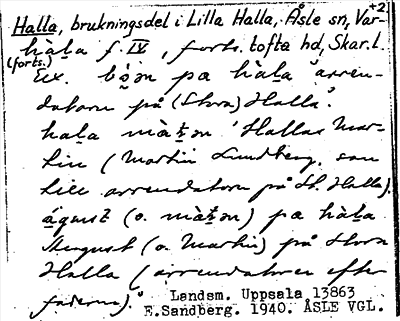 +2
Halla, brukningsdel i Lilla Halla, Åsle sn, Var-
hàḷa f. IV, forts. tofta hd, Skar. l.
(forts.)
Ex. pa hàḷa "arren-
datorn på (Stora) Halla".
haḷa 'Hallas Mar-
tin (Martin Lundberg, son
till arrendatorn på St. Halla).
águst (o. ) pa hàḷa
August (o. Martin) på Stora
Halla (arrendatorer efter
fadern)."
Landsm. Uppsala 13863
E.Sandberg. 1940. ÅSLE VGL.